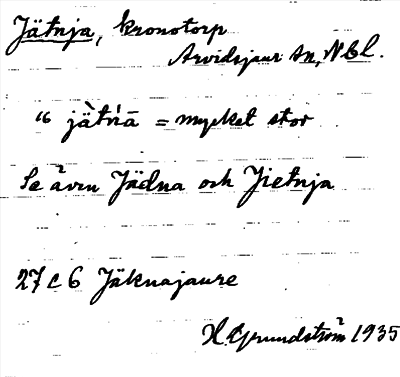 Jätnja, kronotorp
Arvidsjaur sn, Nbl.
" jätńā = mycket stor
Se även Jädna och Jietnja
27 C 6 Jäknajaure
H. Grundström 1935